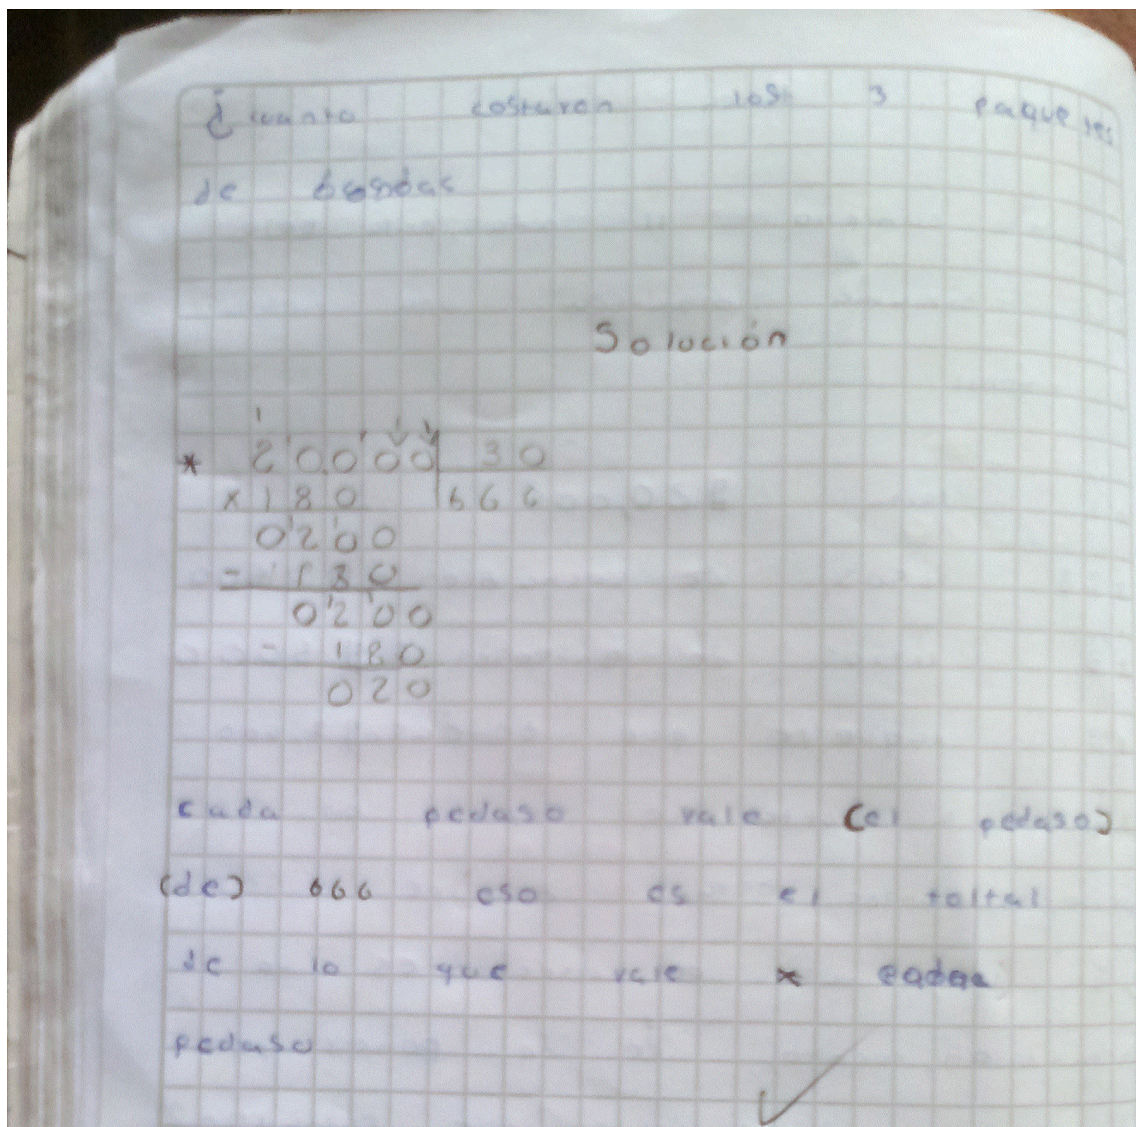 ¿cuanto costaron los 3 paquetes
de
Solución
* 20.000 30
x180 666
0200
- 180
0200
- 180
020
cada pedaso vale (el pedaso)
(de) 666 eso es el toltal
de lo que vale * cada
pedaso